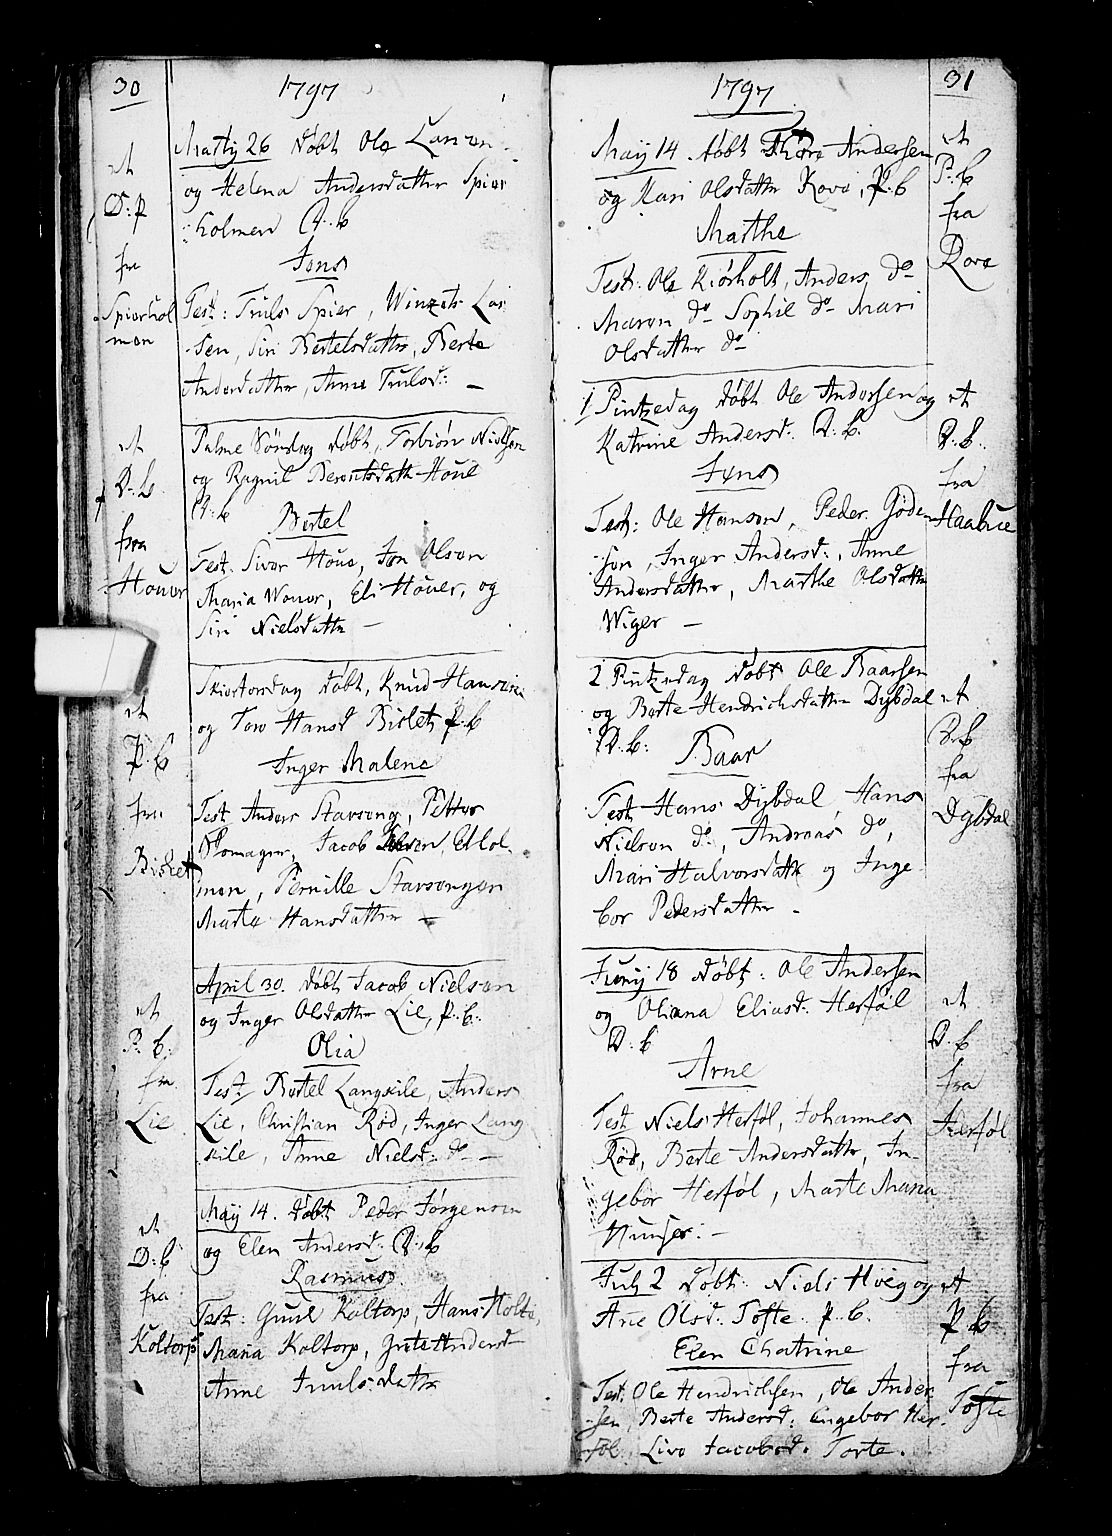 30
1797
et
D: p
fra
Spierhol
men
Martÿ 26 døbt Ole Larsen
og Helena Andersdatter Spier
holmen D..b
Jens
Test: Truls Spier, Lar
sen, Siri Bertelsdatter, Berte
Andersdatter, Anne Trulsd: —
et
D: b.
fra
Houer
Palme Søndag døbt, Torbiön Nielsen
og Ragnil Houe
D: b
Bertel
Test: Siver Houe, Jon Olsen
Maria Eli Houer, og
Siri Nielsdatter —
et
P. b
fra
Bislet
Skiertorsdag døbt, Knud Hansen
og Tore Hansd Bislet, P. b
Inger Malene
Test Anders Stavseng, Petter
Jacob El hol
men, Pernille Stavsengen
Marte Hansdatter —
et
P: b:
fra
Lie
April 30. døbt Jacob Nielsen
og Inger Olsdatter Lie, P: b:
Olia
Test: Bertel Langekile, Anders
Lie, Christian Rød, Inger Lang
kile, Anne Nielsd: do —
et
D: b
fra
Koltorp
Maÿ 14. døbt Peder Jørgensen
og Elen Andersd: D: b
Rasmus
Test: Guul Koltorp, Hans Holte,
Maria Koltorp, Andersd
Anne Truulsdatter
31
1797
Maÿ 14 døbt Andersen
og Kari Olsdatter Rove, P. b
Marthe
Test: Ole Kiörholt, Anders do
Maren do Sophie do Mari
Olsdatter do
et
P: b
fra
Rove
1 Pintzedag døbt Ole Andersen og
Katrine Andersd: D. b.
Jens
Test: Ole Hansen, Peder Gøden
sen, Inger Andersd:, Anne
Andersdatter, Marthe Olsdatter
Wiger —
et
D. b.
fra
Haabue
2 Pintzedag døbt Ole Baarsen
og Berte Hendrichsdatter Dybdal
D. b:
Baar
Test Hans Dybdal, Hans
Nielsen do, Andreas do,
Mari Halvorsdatter og Inge
bor Pedersdatter —
et
D: b
fra
Dybdal
Junÿ 18 døbt: Ole Andersen
og Oliana Eliasd: Herføl
D: b
Arne
Test Niels Herføl, Johannes
Rød, Berte Andersdatter, In
gebor Herføl, Marte Maria
—
et
D. b
fra
Herføl
July 2 døbt: Niels Hveg og
Ane Olsd: Tofte. P. b.
Elen Chatrine
Test: Ole Hendrichsen, Ole Ander
sen, Berte Andersd: Engebor Her
føl, Live Jacobsd. Torte.
et
P. b
fra
Tofte